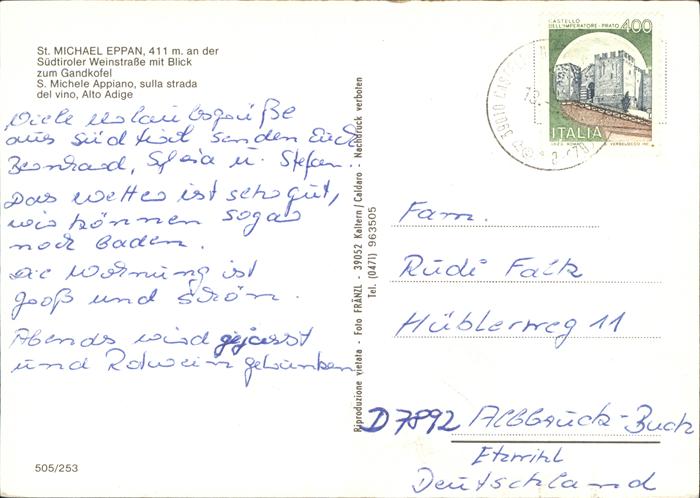 St. MICHAEL EPPAN, 411 m. an der
Südtiroler Weinstraße mit Blick
zum Gandkofel
S. Michele Appiano, sulla strada
del vino, Alto Adige
Viele Urlaubsgrüße
aus Südtirol senden Euch
Bernhard, Sylvia u. Stefan.
Das Wetter ist sehr gut,
wir können sogar
noch baden.
Die Wohnung ist
groß und schön.
Abends wird gejasst
und Rotwein getrunken
505/253
Riproduzione vietata - Foto FRÄNZL - 39052 Kaltern / Caldaro - Nachdruck verboten
Tel. (0471) 963505
CASTELLO
DELL'IMPERATORE - PRATO
400
ITALIA
Fam.
Rudi Falk
Hüblerweg 11
D7892 Albbruck-Buch
Etzwihl
Deutschland